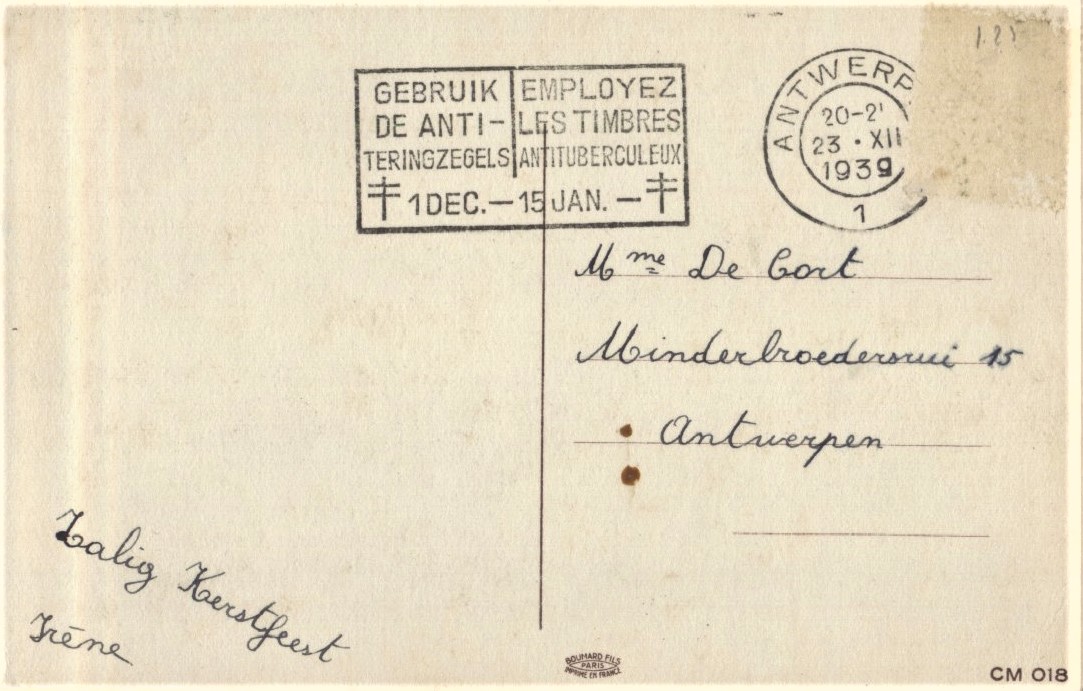 1.25
GEBRUIK
DE ANTI-
TERINGZEGELS
EMPLOYEZ
LES TIMBRES
ANTITUBERCULEUX
1 DEC. — 15 JAN. —
ANTWERP
20-2
23 · XII
1939
1
Mme De Cort
Minderbroedersrui 15
Antwerpen
Zalig Kerstfeest
Irène
BOUMARD FILS
PARIS
IMPRIMÉ EN FRANCE
CM 018